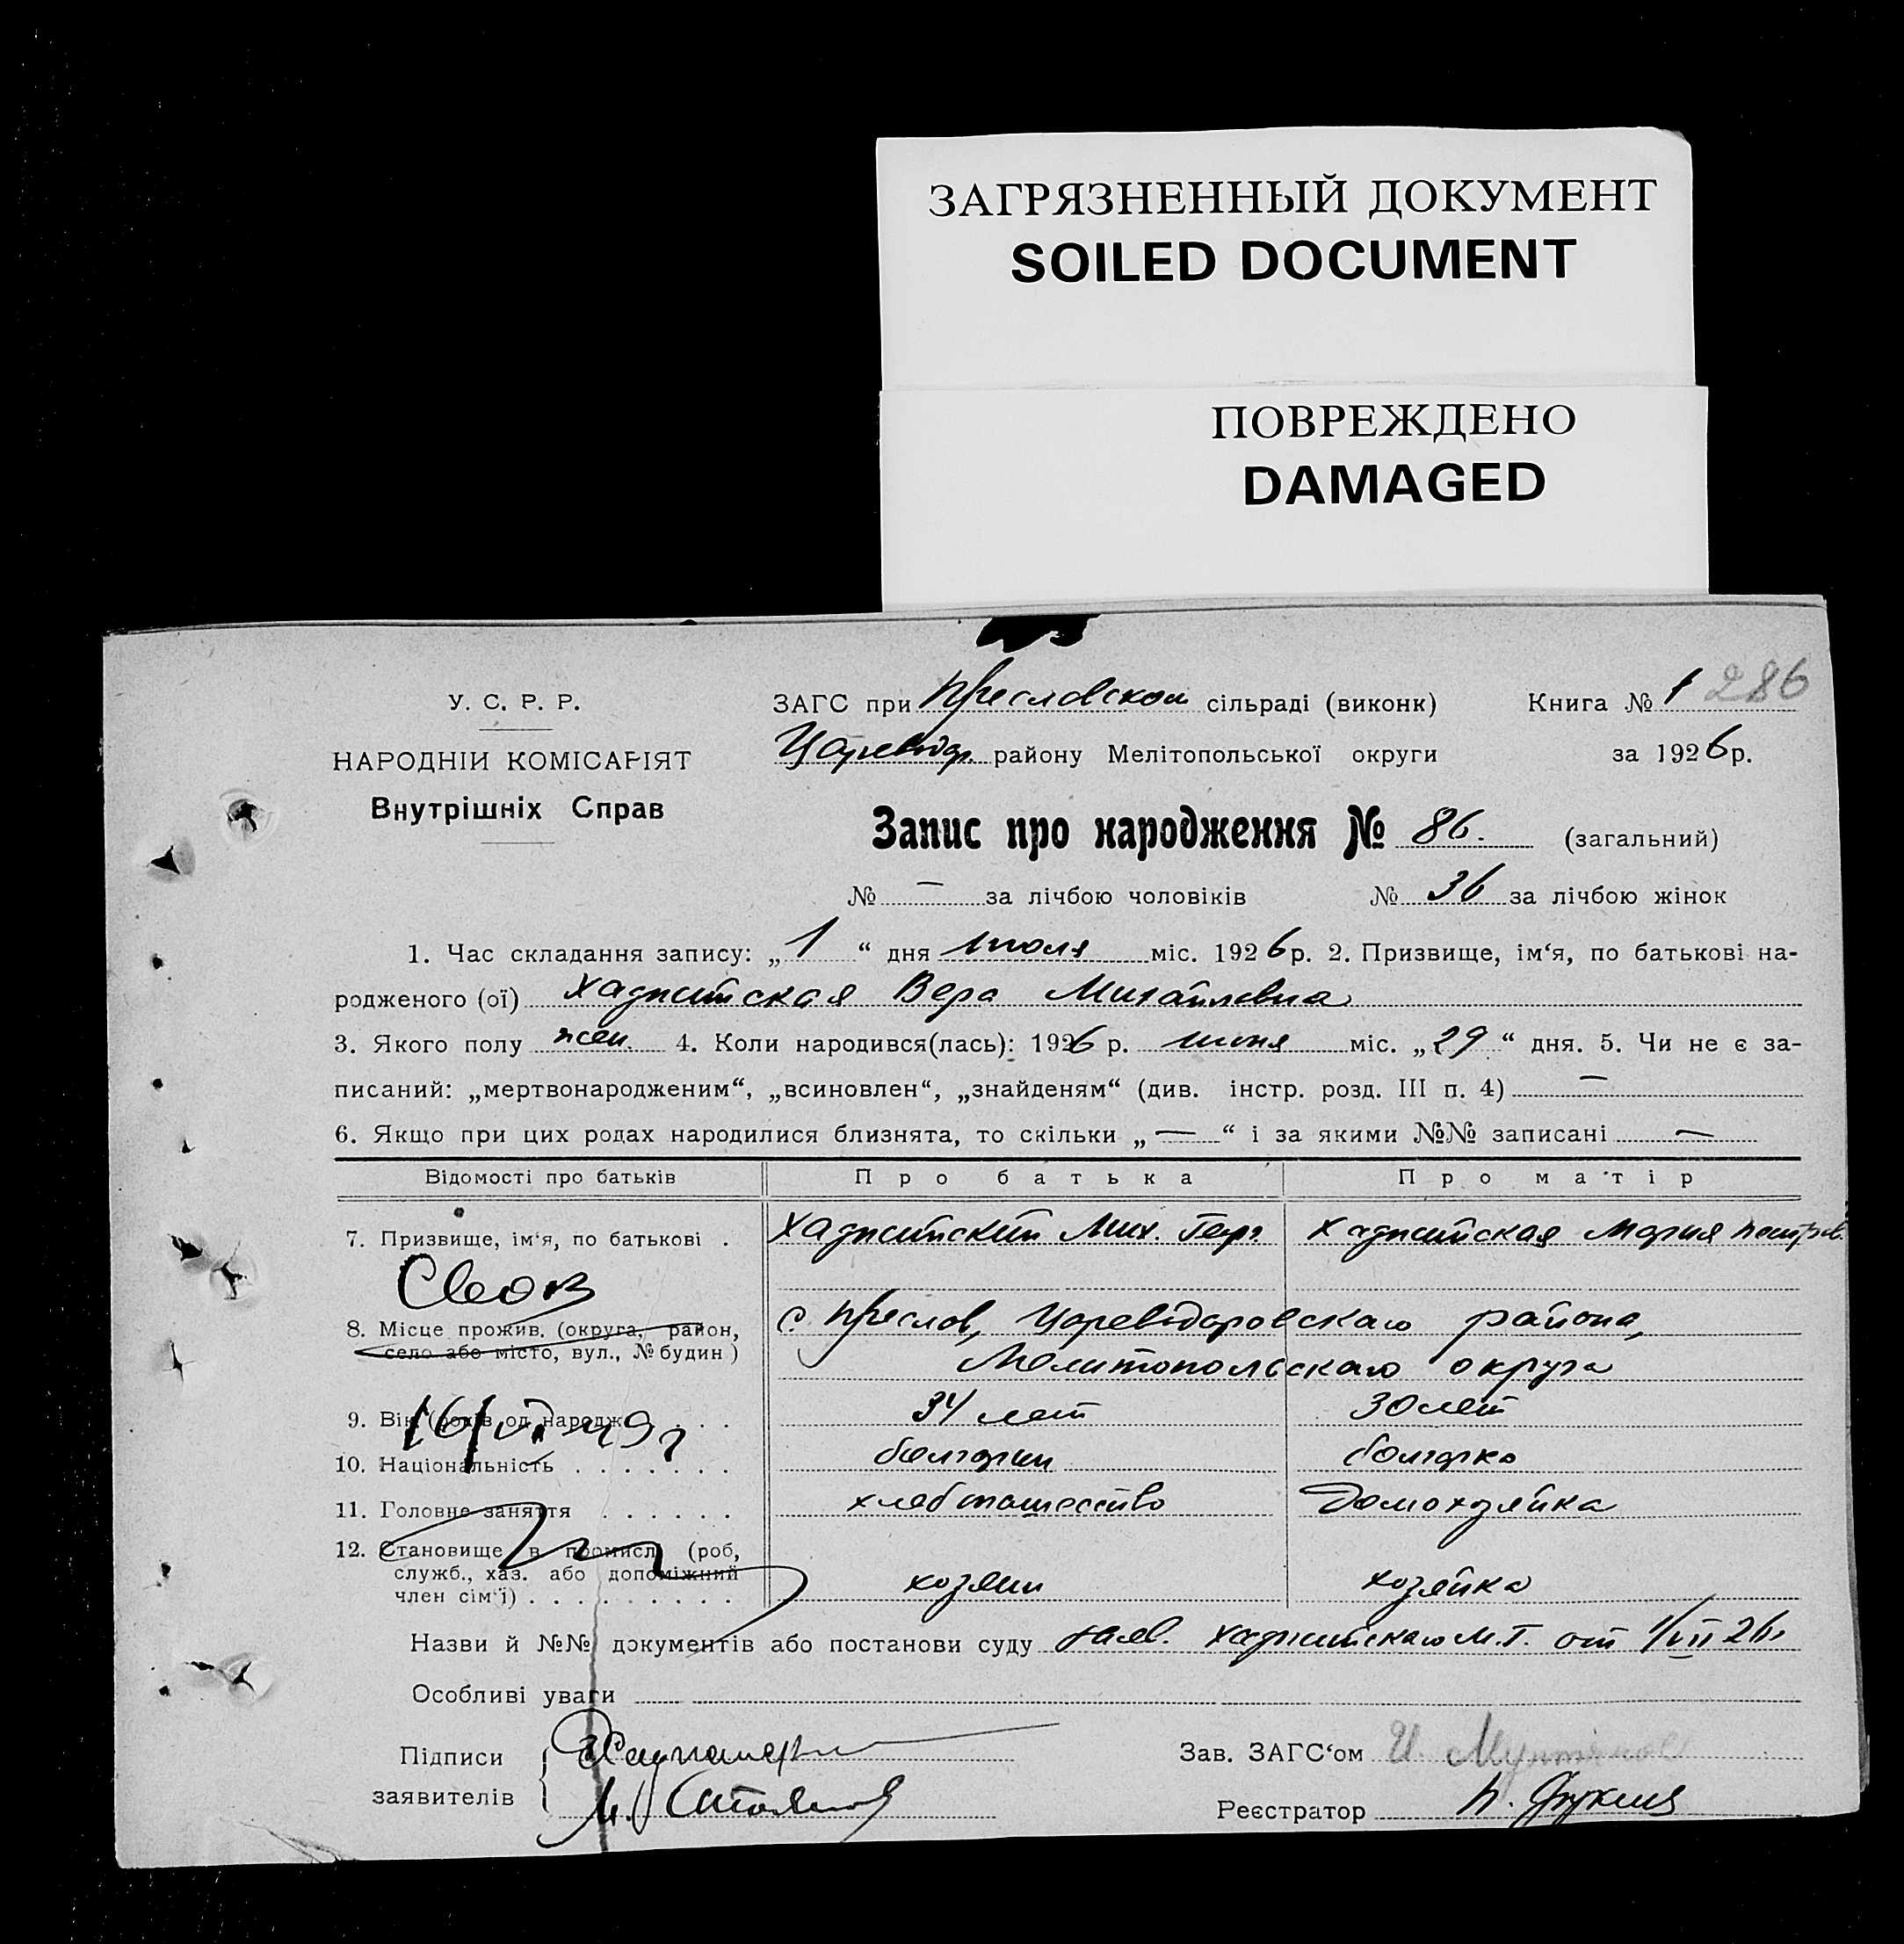 ЗАГРЯЗНЕННЫЙ ДОКУМЕНТ
SOILED DOCUMENT
ПОВРЕЖДЕНО
DAMAGED
У. С. Р. Р.
НАРОДНІЙ КОМІСАРІЯТ
Внутрішніх Справ
ЗАГС при Преславском сільраді (виконк)
Книга № 1 286
Цареводар. району Мелітопольської округи
за 1926 р.
Запис про народження № 86. (загальний)
№ — за лічбою чоловіків № 36 за лічбою жінок
1. Час складання запису: „1“ дня июля міс. 1926 р. 2. Призвище, ім‘я, по батькові на-
родженого (ої) Хаджийская Вера Михайловна
3. Якого полу жен. 4. Коли народився(лась): 1926 р. июня міс. „29“ дня. 5. Чи не є за-
писаний: „мертвонародженим“, „всиновлен“, „знайденям“ (див. інстр. розд. III п. 4) —
6. Якщо при цих родах народилися близнята, то скільки „—“ і за якими №№ записані —
Відомості про батьків Про батька Про матір
7. Призвище, ім‘я, по батькові . Хаджийский Мих. Геор. Хаджийская Мария Петров.
8. Місце прожив. (округа, район, с. Преслав, Цареводаровскаго района,
село або місто, вул., № будин) Мелитопольскаго округа
9. Вік (років од народж) . . . 34 лет 30 лет
10. Національність . . . . . . . болгарин болгарка
11. Головне заняття . . . . . . хлебопашество Домохозяйка
12. Становище в промислі (роб,
служб., хаз. або допоміжний
член сім‘ї) . . . . . . . . . хозяин хозяйка
Назви й №№ документів або постанови суду заяв. Хаджийскаго М.Г. от 1/VII 26г
Особливі уваги
Підписи
заявителів
Зав. ЗАГС‘ом И.
Реєстратор